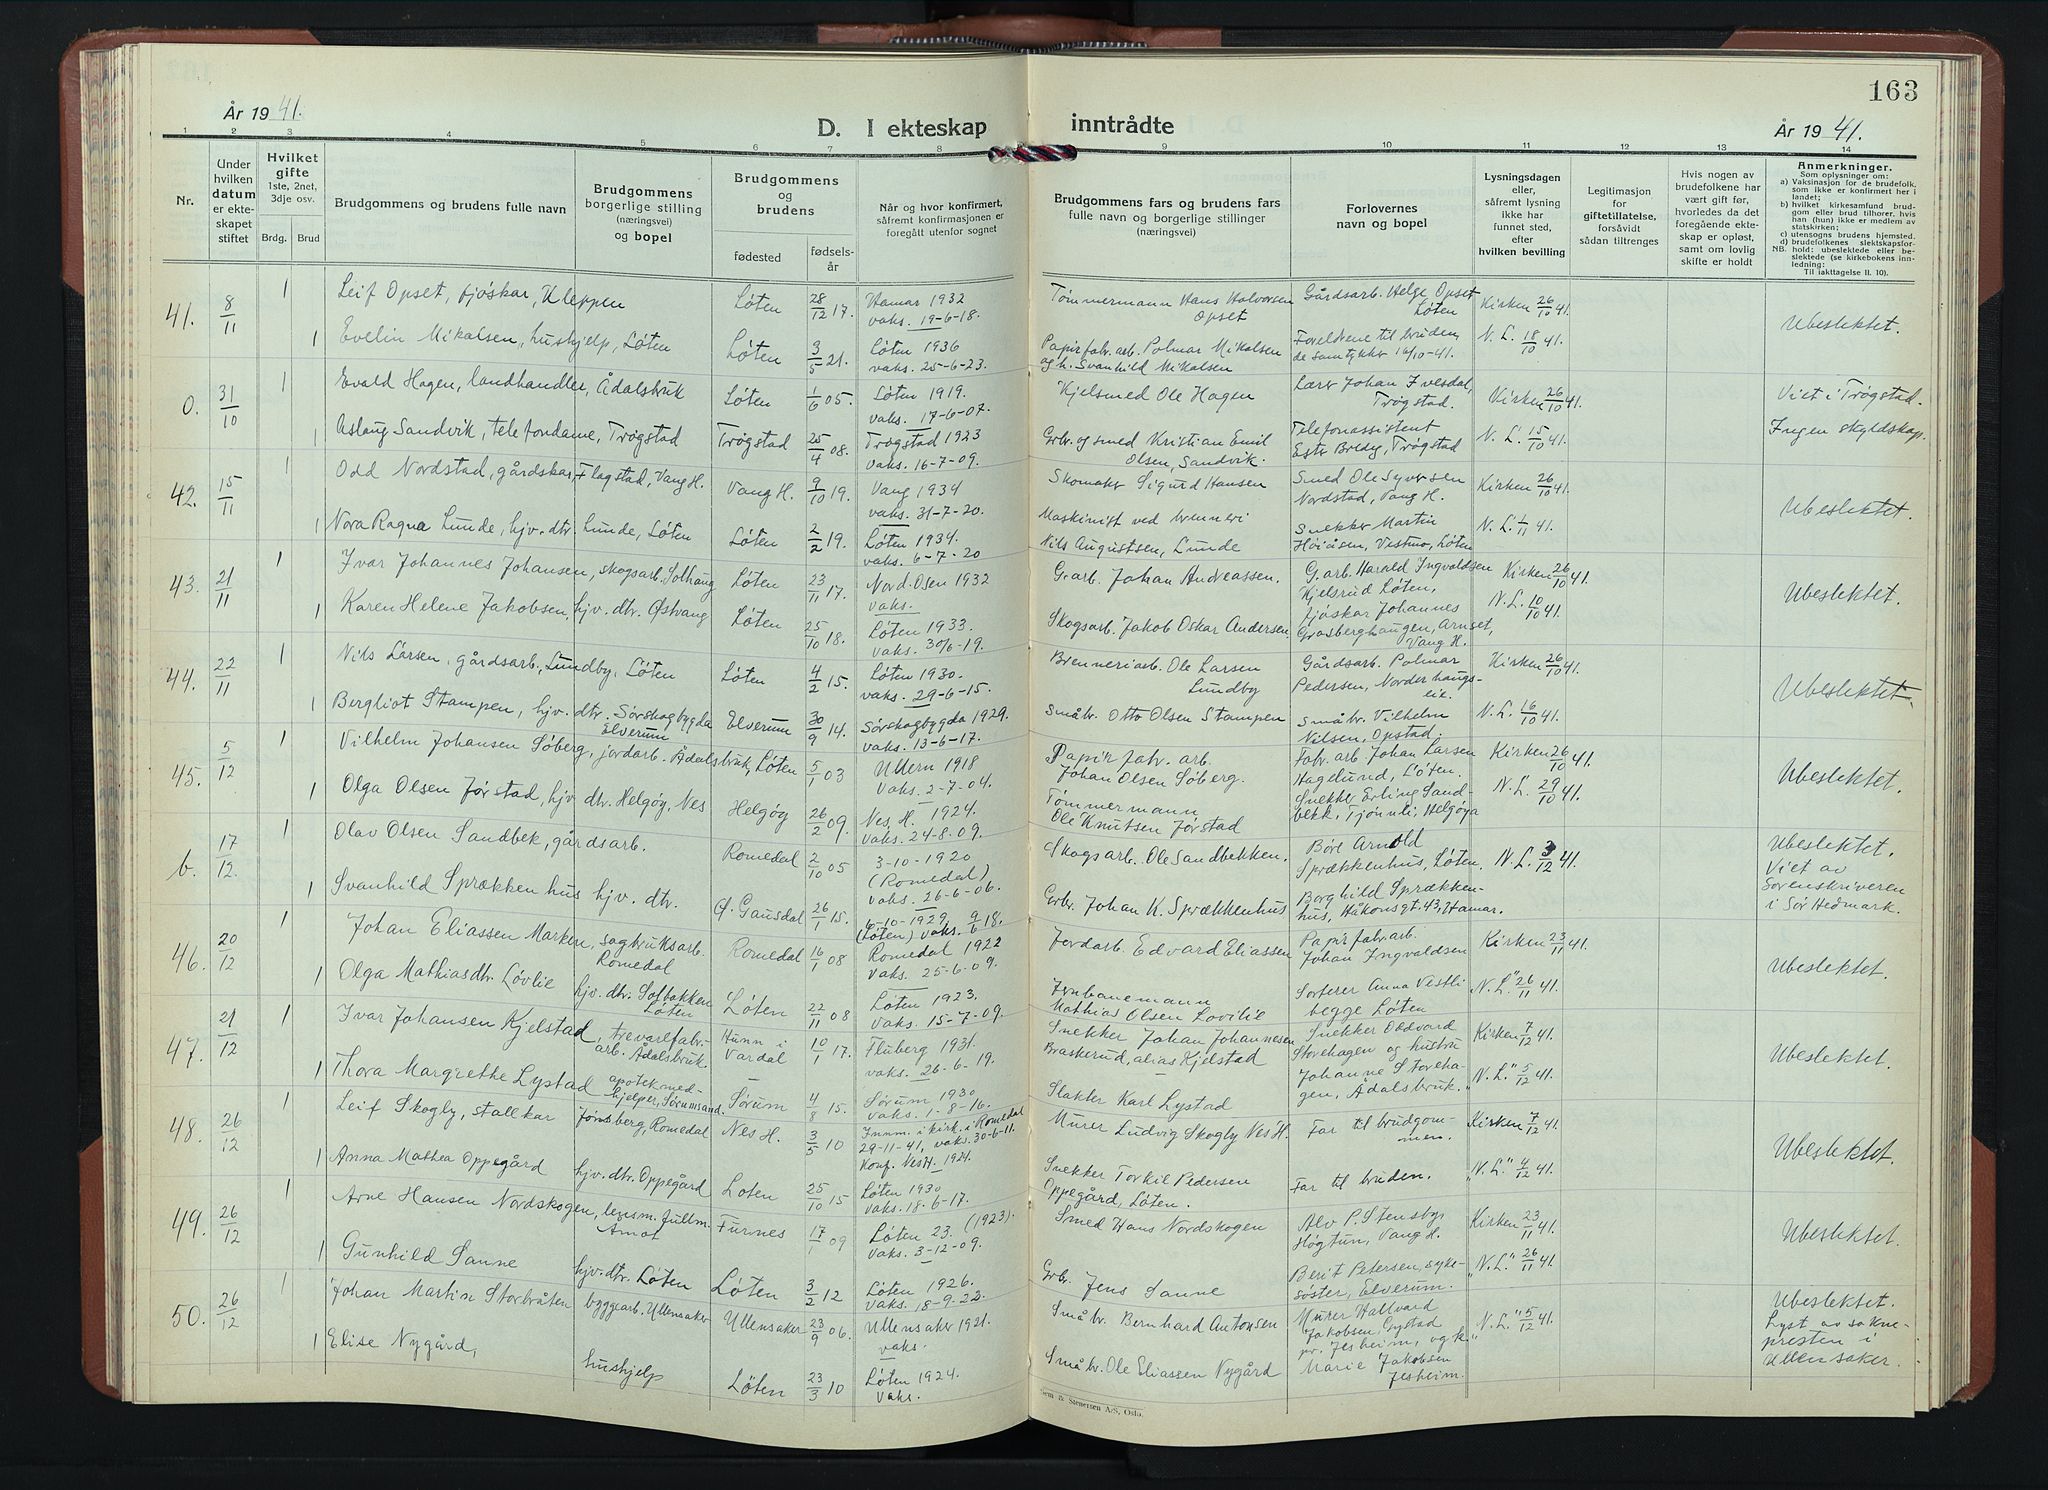 163
År 1941.
D. I ekteskap inntrådte
År 1941.
1 2 3 4 5 6 7 8 9 10 11 12 13 14
Nr.
Under hvilken datum er ekteskapet stiftet
Hvilket gifte 1ste, 2net, 3dje osv.
Brdg. Brud
Brudgommens og brudens fulle navn
Brudgommens borgerlige stilling (næringsvei) og bopel
Brudgommens og brudens
fødested fødsels-år
Når og hvor konfirmert, såfremt konfirmasjonen er foregått utenfor sognet
Brudgommens fars og brudens fars fulle navn og borgerlige stillinger (næringsvei)
Forlovernes navn og bopel
Lysningsdagen eller, såfremt lysning ikke har funnet sted, efter hvilken bevilling
Legitimasjon for giftetillatelse, forsåvidt sådan tiltrenges
Hvis nogen av brudefolkene har vært gift før, hvorledes da det foregående ekteskap er opløst, samt om lovlig skifte er holdt
Anmerkninger.
Som oplysninger om:
a) Vaksinasjon for de brudefolk, som ikke er konfirmert her i landet;
b) hvilket kirkesamfund brudgom eller brud tilhører, hvis han (hun) ikke er medlem av statskirken;
c) utensogns brudens hjemsted.
d) brudefolkenes slektskapsforhold: ubeslektede eller beslektede (se kirkebokens innledning:
NB. Til iakttagelse II. 10).
41. 8/11 1 Leif Opset, fjøskar, Kleppen Løten 28/12 17. Hamar 1932 vaks. 19-6-18. Tømmermann Hans Halvorsen Opset Gårdsarb. Helge Opset Løten Kirken 26/10 41. Ubeslektet.
1 Evelin Mikalsen, hushjelp, Løten Løten 3/5 21. Løten 1936 vaks. 25-6-23. Papirfabr. arb. Polmar Mikalsen og h. Svanhild Mikalsen Foreldrene til bruden, de samtykker 16/10-41. N. L. 18/10 41.
0. 31/10 1 Evald Hagen, landhandler, Ådalsbruk Løten 1/6 05. Løten 1919. vaks. 17-6-07. Hjelsmed Ole Hagen Lærer Johan Ivesdal, Trøgstad. Kirken 26/10 41. Viet i Trøgstad.
1 Aslaug Sandvik, telefondame, Trøgstad Trøgstad 25/4 08. Trøgstad 1923 vaks. 16-7-09. Grbr. og smed Kristian Emil Olsen, Sandvik. Telefonassistent Ester Bredig, Trøgstad N. L. 15/10 41. Ingen skyldskap.
42. 15/11 1 Odd Nordstad, gårdskar, Flagstad, Vang H. Vang H. 9/10 19. Vang 1934 vaks. 31-7-20. Skomaker Sigurd Hansen Smed Ole Syversen Nordstad, Vang H. Kirken 26/10 41. Ubeslektet.
1 Nora Ragna Lunde, hjv. dtr. Lunde, Løten Løten 2/2 19. Løten 1934. vaks. 6-7-20 Maskinist ved brenneri Nils Augustsen, Lunde Snekker Martin Høiåsen, Vestmo, Løten N. L. 1/11 41.
43. 21/11 1 Ivar Johannes Johansen, skogsarb. Solhaug Løten 23/11 17. Nord. Osen 1932 vaks. G. arb. Johan Andreassen. G. arb. Harald Ingvaldsen Kjelsrud Løten, Kirken 26/10 41. Ubeslektet.
1 Karen Helene Jakobsen, hjv. dtr. Østvang Løten 25/10 18. Løten 1933. vaks. 30/6-19. Skogsarb. Jakob Oskar Andersen fjøskar Johannes Grasberghaugen, Arnset, Vang H. N. L. 10/10 41.
44. 22/11 1 Nils Larsen, gårdsarb., Lundby, Løten Løten 4/2 15. Løten 1930. vaks. 29-6-15. Brenneriarb. Ole Larsen Lundby Gårdsarb. Polmar Pedersen, Norderhaugseie. Kirken 26/10 41. Ubeslektet.
1 Bergliot Stampen, hjv. dtr. Sørskogbygda Elverum Elverum 30/9 14. Sørskogbygda 1929. vaks. 13-6-17. Småbr. Otto Olsen Stampen Småbr. Vilhelm Nilsen, Opstad. N. L. 16/10 41.
45. 5/12 1 Vilhelm Johansen Søberg, jordarb. Ådalsbruk, Løten 5/1 03 Ullern 1918 vaks. 2-7-04. Papirfabr. arb. Johan Olsen Søberg. Fabr. arb Johan Larsen Hagelund, Løten. Kirken 26/10 41. Ubeslektet.
1 Olga Olsen Jørstad, hjv. dtr. Helgøy, Nes Helgøy 26/2 09. Nes, H. 1924. vaks. 24-8-09. Tømmermann Ole Knutsen Jørstad Snekker Erling Sandbekk, Tjønnli, Helgøya N. L. 29/10 41.
b. 17/12. 1 Olav Olsen Sandbek, gårdsarb. Romedal 2/10 05 3-10-1920 (Romedal) vaks. 26-6-06. Skogsarb. Ole Sandbekken. Børe Arnold Sprækkenhus, Løten. N. L. 3/12 41. Ubeslektet. Viet av Sorenskriveren i Sør Hedmark.
1 Svanhild Sprækkenhus hjv. dtr. Ø. Gausdal 26/1 15. 6-10-1929. (Løten) vaks. 9/6 18. Grbr. Johan K. Sprækkenhus Borghild Sprækkenhus, Håkonsgt. 43, Hamar.
46. 20/12 1 Johan Eliassen Marken, sagbruksarb. Romedal Romedal 16/1 08 Romedal 1922 vaks. 25-6-09. Jordarb. Edvard Eliassen Papirfabr. arb. Johan Ingvaldsen Kirken 23/11 41. Ubeslektet.
1 Olga Mathiasdtr. Løvlie hjv. dtr. Solbakken Løten Løten 22/11 08 Løten 1923. vaks. 15-7-09. Jernbanemann Mathias Olsen Lovilie Sorterer Anna Vestli begge Løten "N. L." 26/11 41.
47. 21/12 1 Ivar Johansen Kjelstad, trevarefabr. arb. Ådalsbruk. Hunn i Vardal 10/1 17. Fluberg 1931. vaks. 26-6-19. Snekker Johan Johannesen Braskerud, alias Kjelstad Snekker Oddvard Storehagen og hustru Kirken 7/12 41. Ubeslektet.
1 Thora Margrethe Lystad apotekmedhjelper, Sørumsand. Sørum 4/8 15. Sørum 1930 vaks. 1-8-16. Slakter Karl Lystad Johanne Storehagen, Ådalsbruk. "N. L." 5/12 41.
48. 26/12 1 Leif Skogly, stallkar Jønsberg, Romedal Nes H. 3/5 10 Innm. i kirk. i Romedal 29-11-41, vaks. 30-6-11. Konf. Nes H. 1924. Murer Ludvig Skogly Nes H. Far til brudgommen. Kirken 7/12 41. Ubeslektet.
1 Anna Mathea Oppegård hjv. dtr. Oppegård Løten 25/10 15 Løten 1930 vaks. 18-6-17. Snekker Torkil Pedersen Oppegård, Løten. Far til bruden. "N. L." 4/12 41.
49. 26/12 1 Arne Hansen Nordskogen, lensm. fullm. Åmot Furnes 17/1 09 Løten 23. (1923). vaks. 3-12-09. Smed Hans Nordskogen Alv P. Stensby Høgtun, Vang H. Kirken 23/11 41. Ubeslektet.
1 Gunhild Sanne hjv. dtr. Løten Løten 3/2 12 Løten 1926. vaks. 18-9-22. Grbr. Jens Sanne Berit Petersen, sykesøster, Elverum. "N. L." 26/11 41.
50. 26/12 1 Johan Martin Storbråten byggearb. Ullensaker Ullensaker 23/9 06. Ullensaker 1921. vaks. Småbr. Bernhard Antonsen Murer Hallvard Jakobsen, Crystad pr. Jesheim, og k. "N. L." 5/12 41. Ubeslektet. Lyst av soknepresten i Ullensaker.
1 Elise Nygård, hushjelp Løten 23/3 10 Løten 1924. vaks. Småbr. Ole Eliassen Nygård Marie Jakobsen Jesheim.
Sem & Stenersen A/S, Oslo.